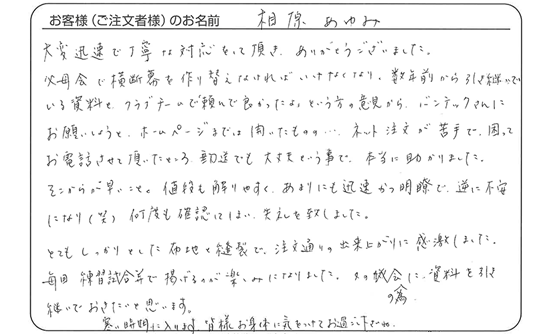 お客様(ご注文者様)のお名前 相原 あゆみ
大変迅速で丁寧な対応をして頂き、ありがとうございました。
父母会で横断幕を作り替えなければいけなくなり、数年前から引き継いで
いる資料を、クラブチームで頼んで良かったよという方の意見から、バンテックさんに
お願いしようと、ホームページまでは開いたものの…、ネット注文が苦手で、困って
お電話させて頂いたところ、郵送でも大丈夫という事で、本当に助かりました。
そこからが早いこと。値段も解りやすく、あまりにも迅速かつ明瞭で、逆に不安
になり(笑) 何度も確認してしまい、失礼を致しました。
とてもしっかりとした布地と縫製で、注文通りの出来上がりに感激しました。
毎回練習試合等で掲げるのが楽しみになりました。次の機会の為に、資料を引き
継いでおきたいと思います。
寒い時期に入ります。皆様お身体に気をつけてお過ごし下さい。